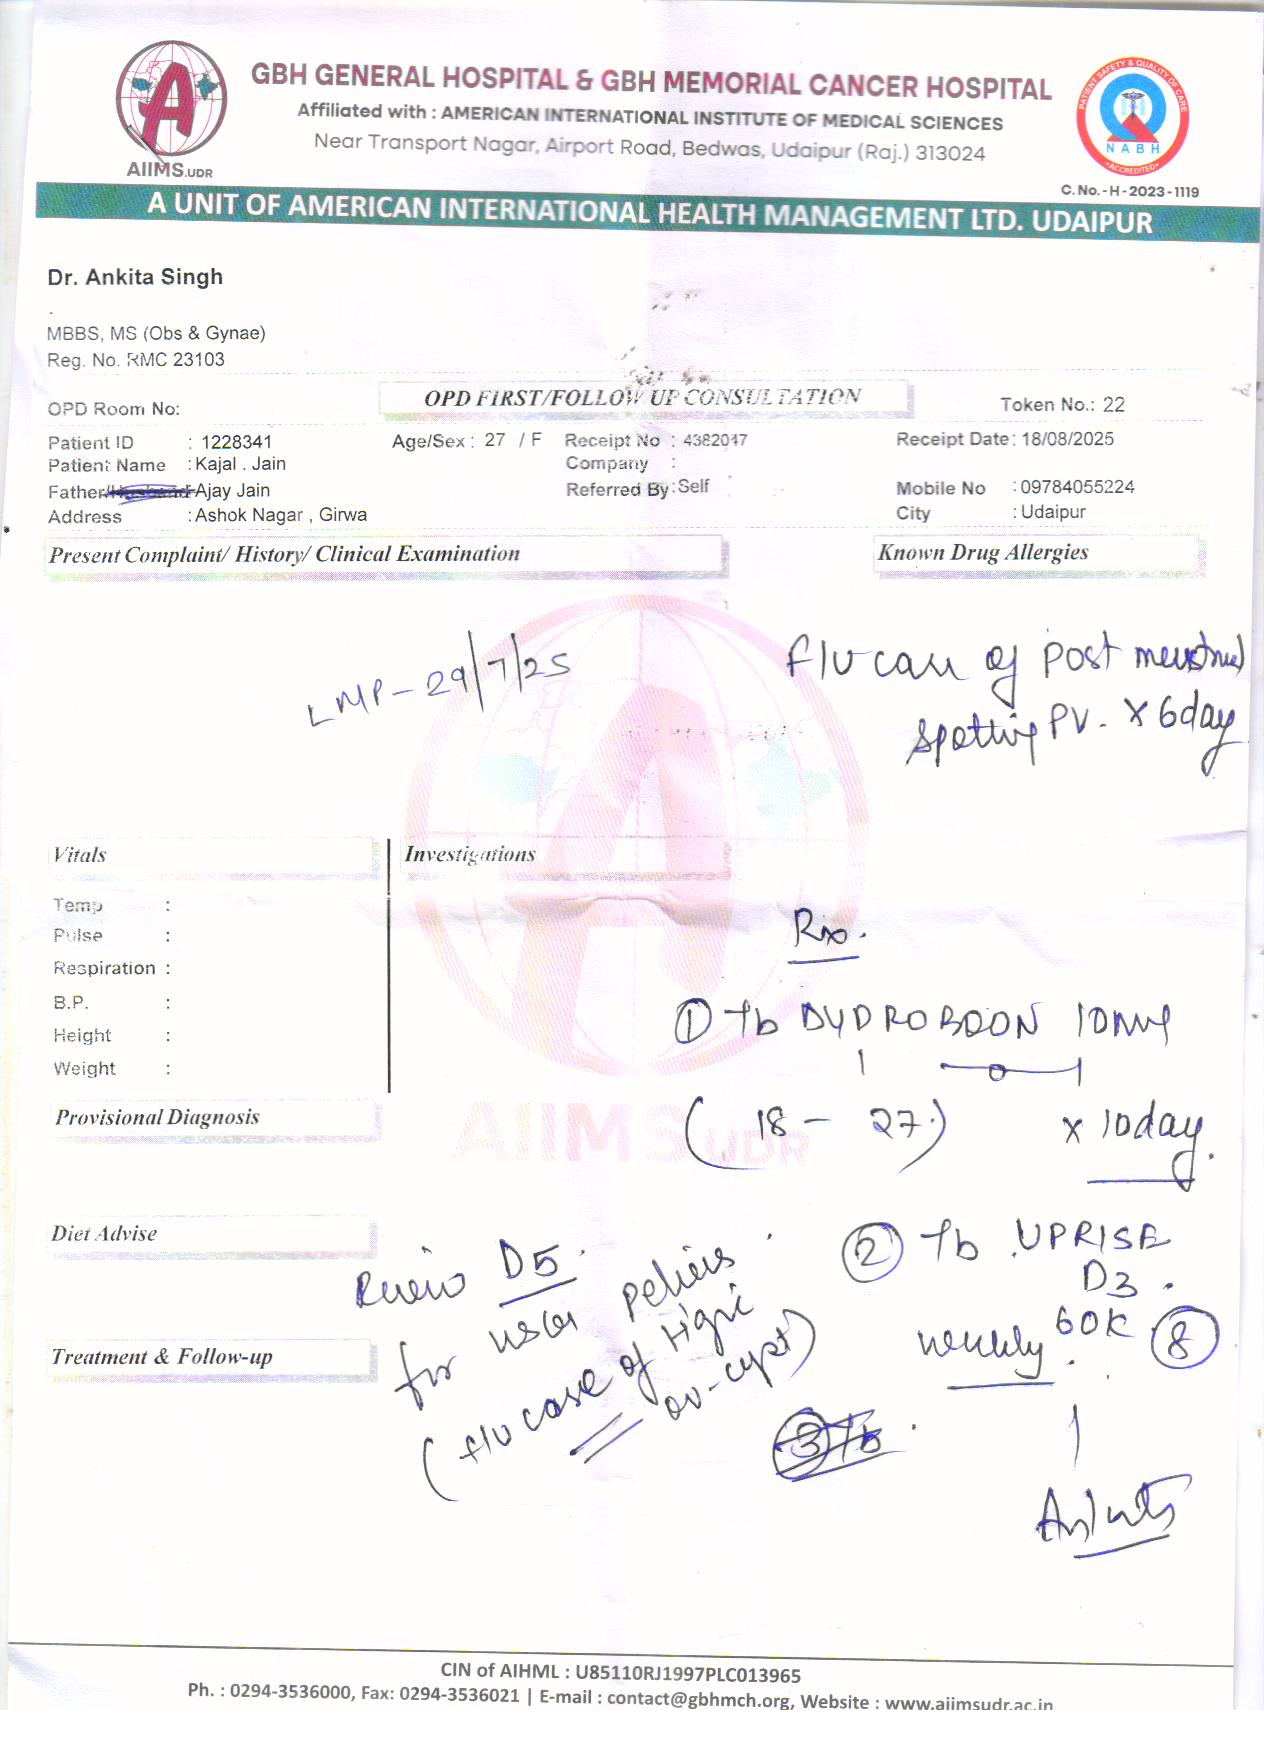 GBH GENERAL HOSPITAL & GBH MEMORIAL CANCER HOSPITAL
Affiliated with : AMERICAN INTERNATIONAL INSTITUTE OF MEDICAL SCIENCES
Near Transport Nagar, Airport Road, Bedwas, Udaipur (Raj.) 313024
A
AIIMS.UDR
PATIENT SAFETY & QUALITY OF CARE
NABH
ACCREDITED
C. No. - H - 2023 - 1119
A UNIT OF AMERICAN INTERNATIONAL HEALTH MANAGEMENT LTD. UDAIPUR
Dr. Ankita Singh
MBBS, MS (Obs & Gynae)
Reg. No. RMC 23103
OPD Room No:
OPD FIRST/FOLLOW UP CONSULTATION
Token No.: 22
Patient ID : 1228341 Age/Sex : 27 / F Receipt No : 4382047 Receipt Date : 18/08/2025
Patient Name : Kajal . Jain Company :
Father/Husband : Ajay Jain Referred By : Self Mobile No : 09784055224
Address : Ashok Nagar , Girwa City : Udaipur
Present Complaint/ History/ Clinical Examination
Known Drug Allergies
LMP - 29/7/25
f/u case of post menstrual
spotting PV. x 6 day
Vitals
Investigations
Temp :
Pulse :
Respiration :
B.P. :
Height :
Weight :
Rx.
① Tb DYDROBOON 10mg
1 — 0 — 1
(18 - 27) x 10 day.
Provisional Diagnosis
Diet Advise
② Tb UPRISE
D3.
60K ⑧
weekly.
Review D5.
for USG pelvis
(f/u case of
ov-cyst)
Treatment & Follow-up
③ Tb
Ankita
AIIMS.UDR
CIN of AIHML : U85110RJ1997PLC013965
Ph. : 0294-3536000, Fax: 0294-3536021 | E-mail : contact@gbhmch.org, Website : www.aiimsudr.ac.in